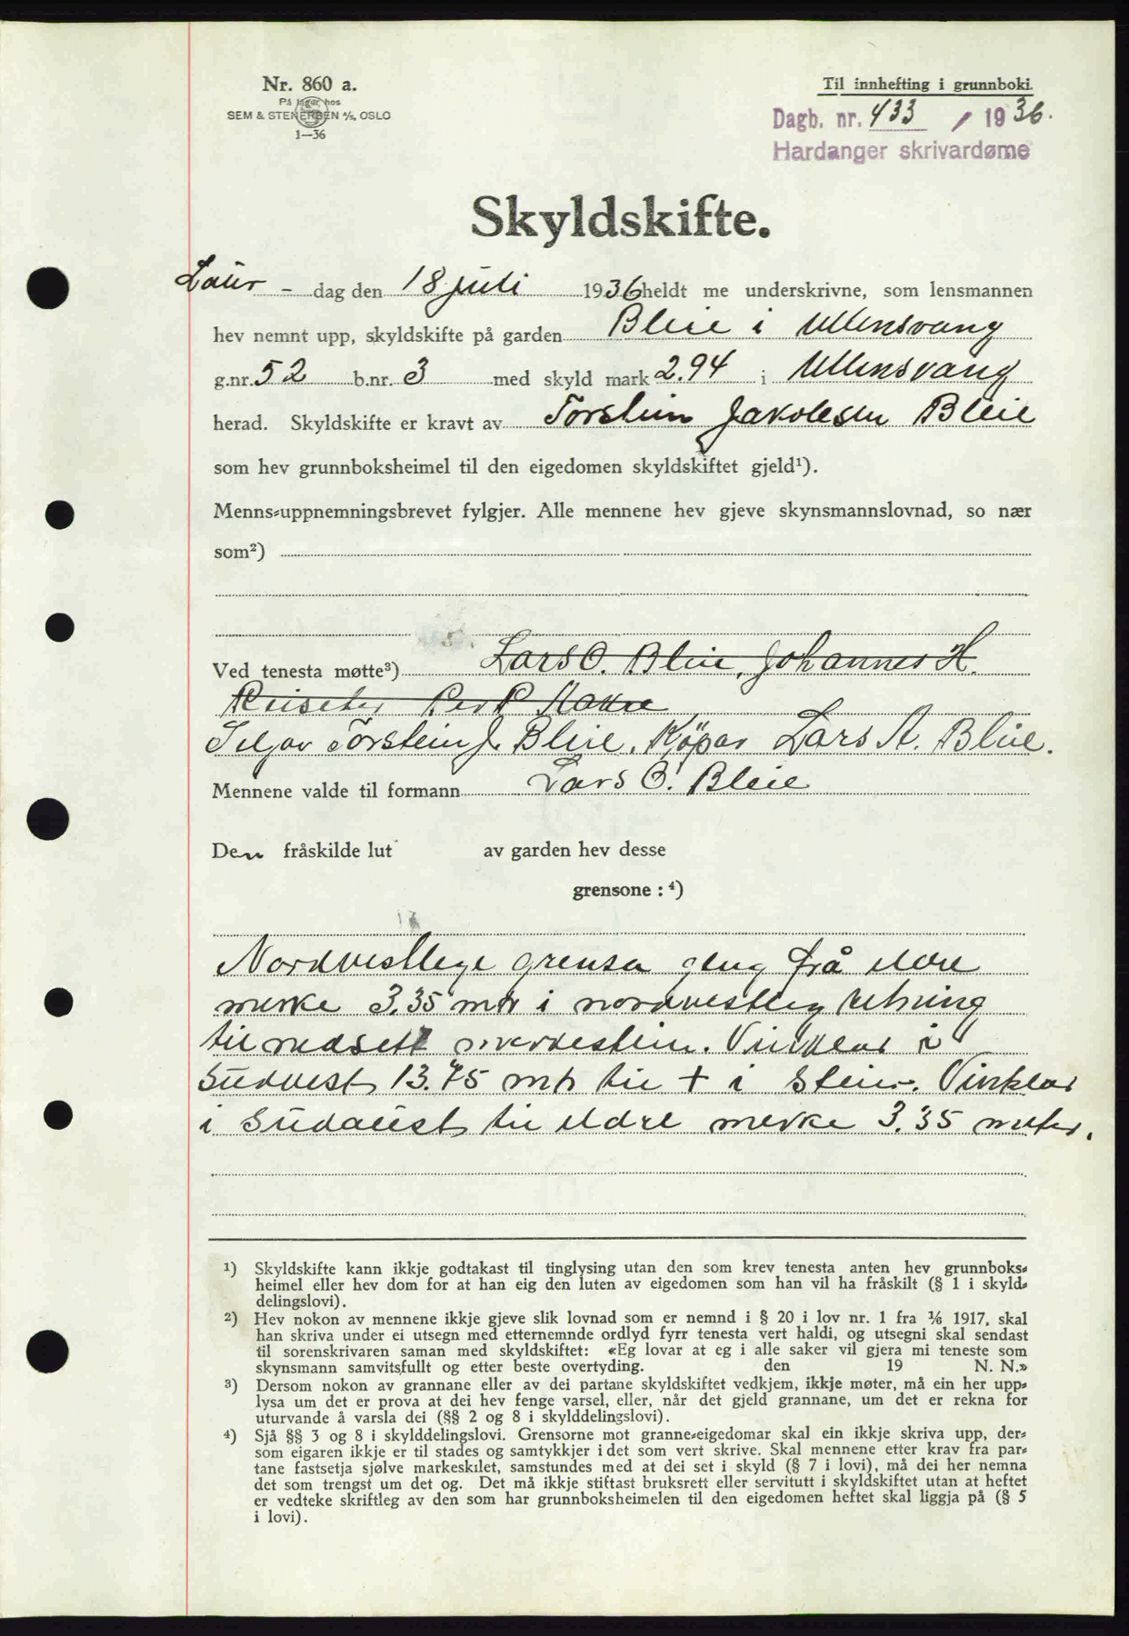 Nr. 860 a.
På lager hos
SEM & STENERSEN A/S, OSLO
1—36
Til innhefting i grunnboki.
Dagb. nr. 433 / 1936.
Hardanger skrivardøme
Skyldskifte.
Laur - dag den 18 juli 1936 heldt me underskrivne, som lensmannen
hev nemnt upp, skyldskifte på garden Bleie i Ullensvang
g.nr. 52 b.nr. 3 med skyld mark 2.94 i Ullensvang
herad. Skyldskifte er kravt av Torstein Jakobsen Bleie
som hev grunnboksheimel til den eigedomen skyldskiftet gjeld¹).
Menns-uppnemningsbrevet fylgjer. Alle mennene hev gjeve skynsmannslovnad, so nær
som²)
Ved tenesta møtte³) Lars O. Bleie, Johannes H.
Reiseter Per P.
Seljar Torstein J. Bleie, Köpar Lars A. Bleie.
Mennene valde til formann Lars O. Bleie
Den fråskilde lut av garden hev desse
grensone : ⁴)
Nordvestlege grensa geng frå eldre
merke 3.35 mtr i nordvestleg retning
til nedsett merkestein. Vinklar i
Südvest 13.75 mtr til + i Stein. Vinklar
i Südaust til eldre merke 3.35 meter.
¹) Skyldskifte kann ikkje godtakast til tinglysing utan den som krev tenesta anten hev grunnboks-
heimel eller hev dom for at han eig den luten av eigedomen som han vil ha fråskilt (§ 1 i skyld-
delingslovi).
²) Hev nokon av mennene ikkje gjeve slik lovnad som er nemnd i § 20 i lov nr. 1 fra ⅙ 1917, skal
han skriva under ei utsegn med etternemnde ordlyd fyrr tenesta vert haldi, og utsegni skal sendast
til sorenskrivaren saman med skyldskiftet: «Eg lovar at eg i alle saker vil gjera mi teneste som
skynsmann samvitsfullt og etter beste overtyding. den 19 N. N.»
³) Dersom nokon av grannane eller av dei partane skyldskiftet vedkjem, ikkje møter, må ein her upp-
lysa um det er prova at dei hev fenge varsel, eller, når det gjeld grannane, um det er rekna for
uturvande å varsla dei (§§ 2 og 8 i skylddelingslovi).
⁴) Sjå §§ 3 og 8 i skylddelingslovi. Grensorne mot granne-eigedomar skal ein ikkje skriva upp, der-
som eigaren ikkje er til stades og samtykkjer i det som vert skrive. Skal mennene etter krav fra par-
tane fastsetja sjølve markeskilet, samstundes med at dei set i skyld (§ 7 i lovi), må dei her nemna
det som trengst um det og. Det må ikkje stiftast bruksrett eller servitutt i skyldskiftet utan at heftet
er vedteke skriftleg av den som har grunnboksheimelen til den eigedomen heftet skal liggja på (§ 5
i lovi).